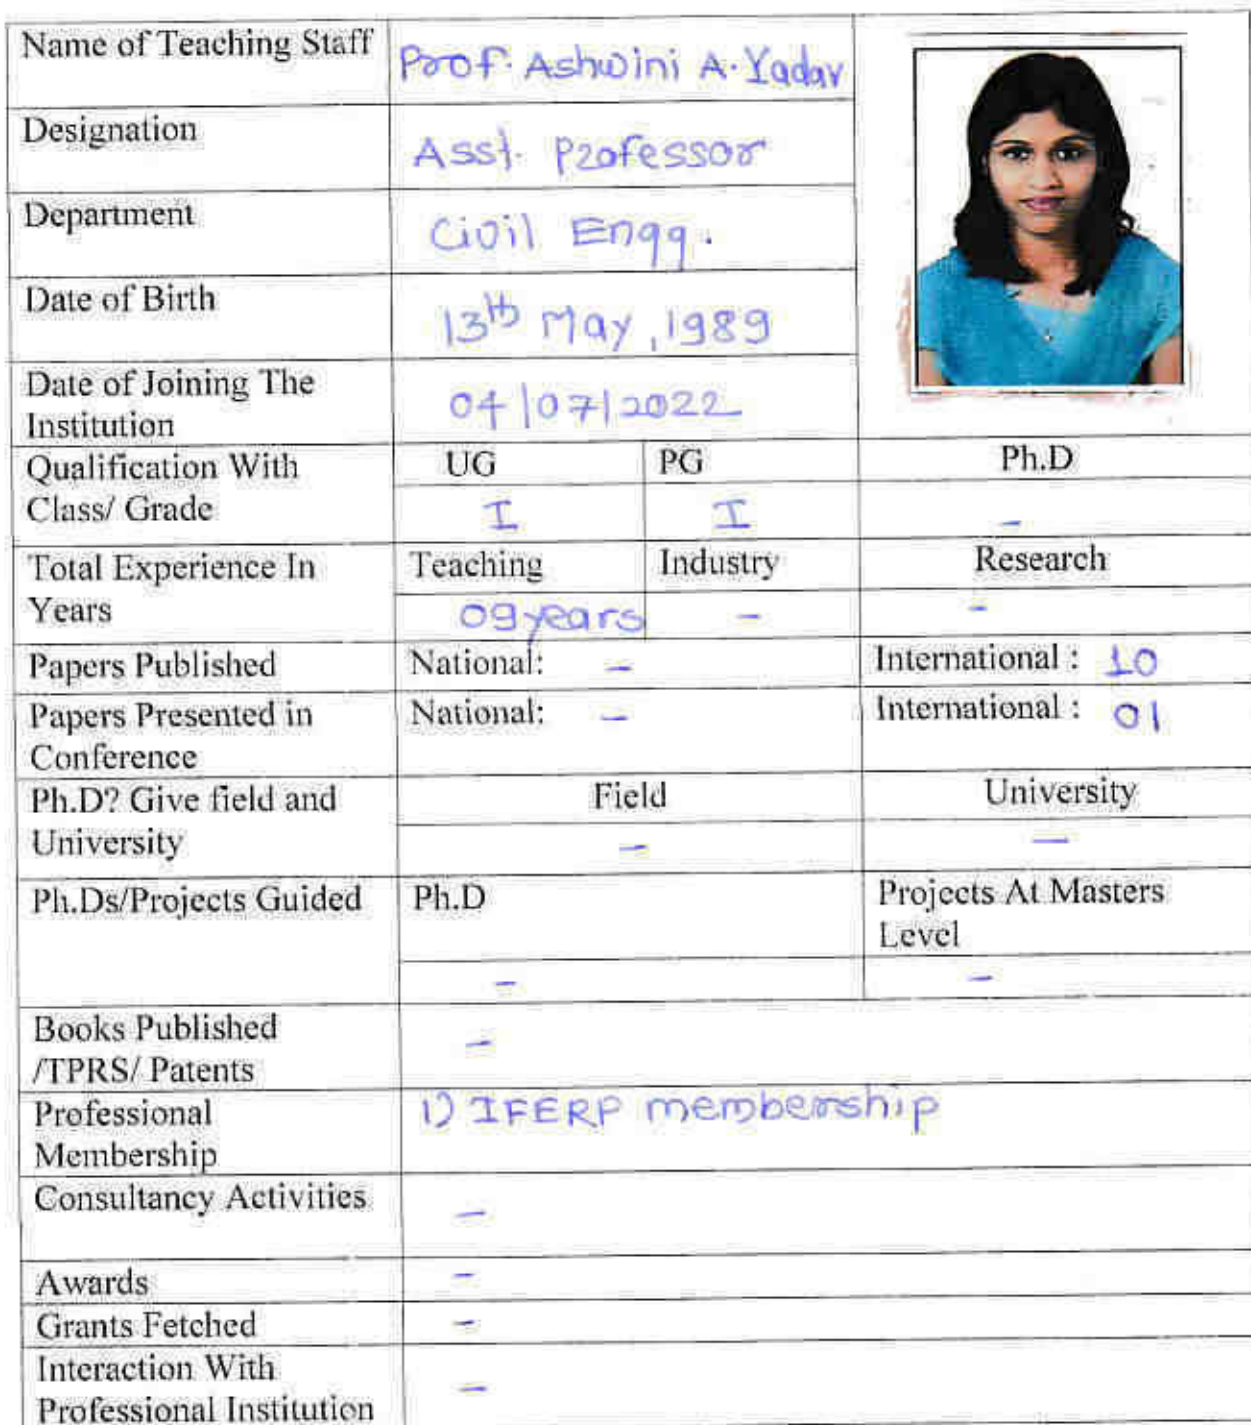 Name of Teaching Staff Prof. Ashwini A. Yadav
Designation Asst. Professor
Department Civil Engg.
Date of Birth 13th May, 1989
Date of Joining The
Institution 04/07/2022
Qualification With UG PG Ph.D
Class/ Grade I I -
Total Experience In Teaching Industry Research
Years 09 years - -
Papers Published National: - International : 10
Papers Presented in National: - International : 01
Conference
Ph.D? Give field and Field University
University - -
Ph.Ds/Projects Guided Ph.D Projects At Masters
Level
- -
Books Published
/TPRS/ Patents -
Professional 1) IFERP membership
Membership
Consultancy Activities -
Awards -
Grants Fetched -
Interaction With
Professional Institution -